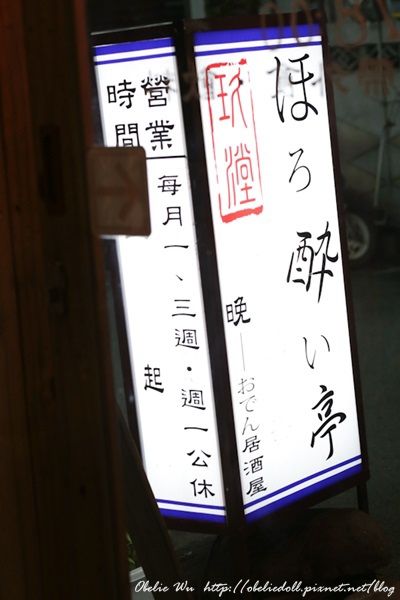 ほろ酔い亭
玖瑩
晩—おでん居酒屋
營業
時間
每月一、三週·週一公休
起
Obelie Wu http://obeliedoll.pixnet.net/blog